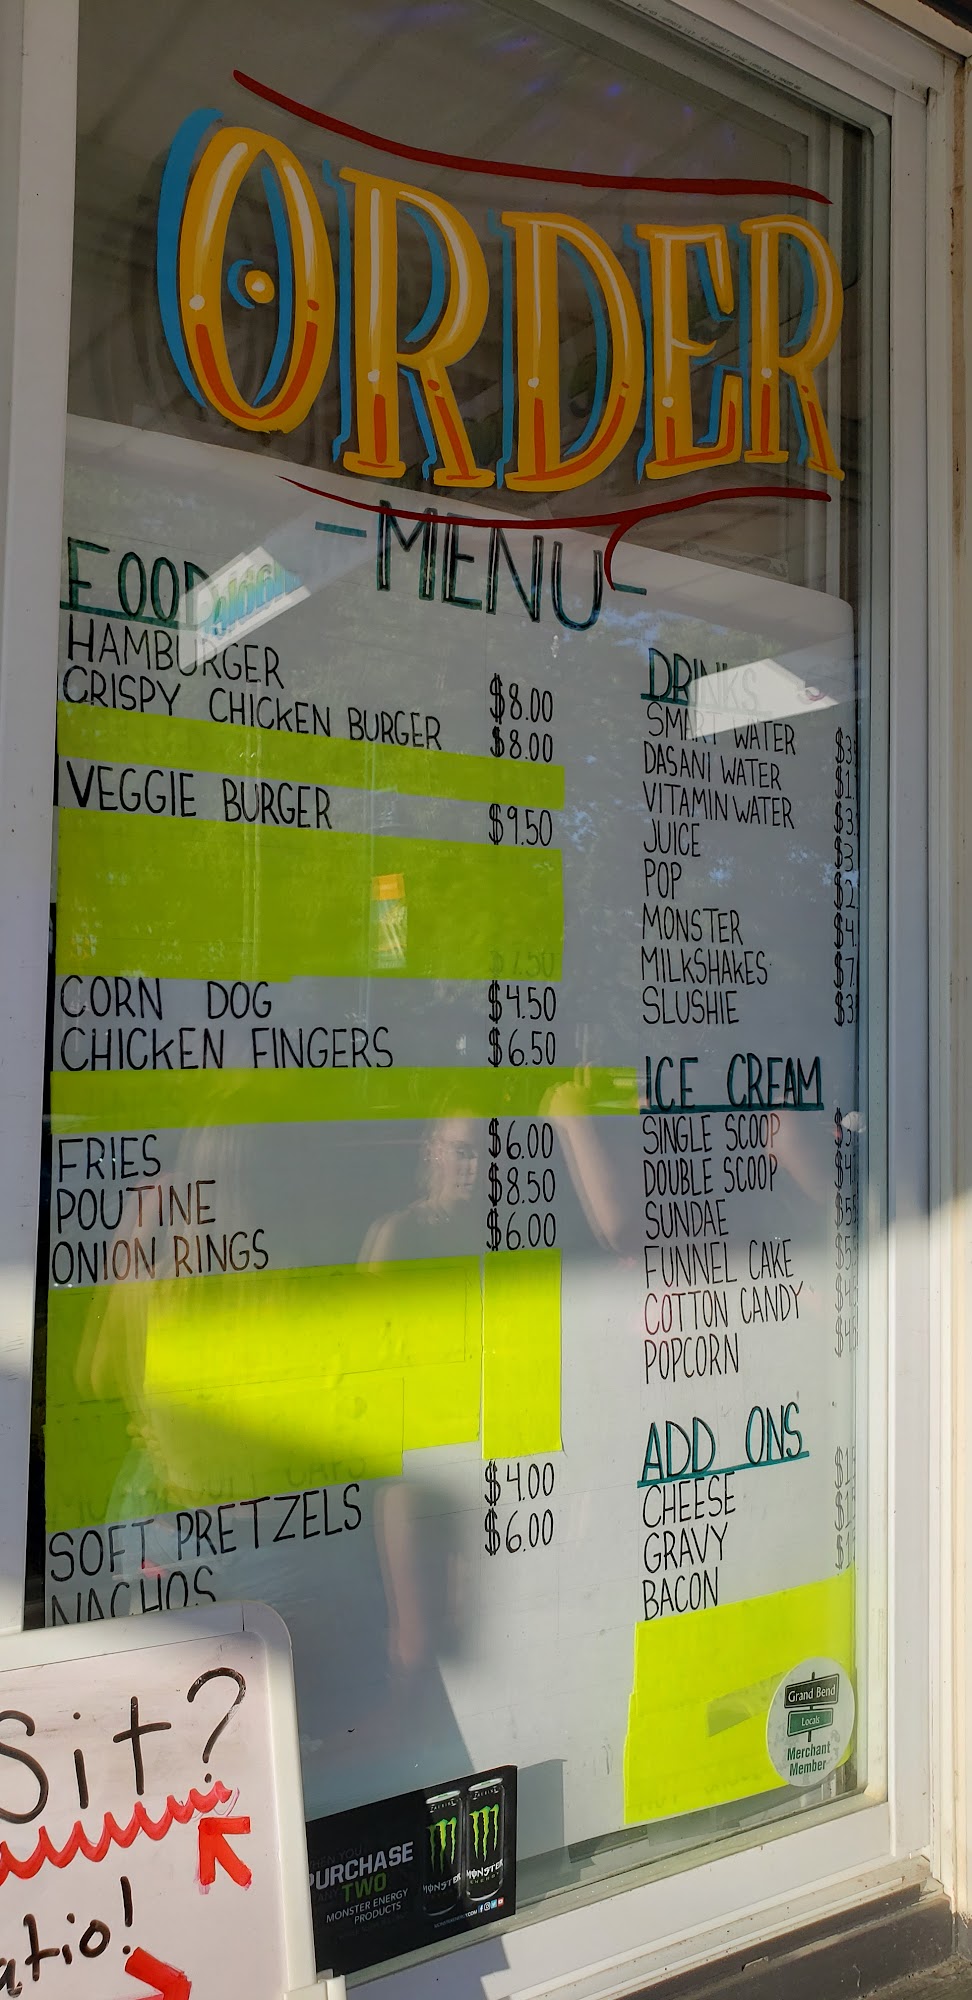 ORDER
-MENU-
FOOD
HAMBURGER $8.00
CRISPY CHICKEN BURGER $8.00
VEGGIE BURGER $9.50
CORN DOG $4.50
CHICKEN FINGERS $6.50
FRIES $6.00
POUTINE $8.50
ONION RINGS $6.00
SOFT PRETZELS $4.00
NACHOS $6.00
DRINKS
SMART WATER $3
DASANI WATER $1
VITAMIN WATER $3
JUICE $3
POP $2
MONSTER $4
MILKSHAKES $7
SLUSHIE $3
ICE CREAM
SINGLE SCOOP $3
DOUBLE SCOOP $4
SUNDAE $5
FUNNEL CAKE $5
COTTON CANDY $4
POPCORN $4
ADD ONS
CHEESE $1
GRAVY $1
BACON $1
Grand Bend
Locals
Merchant
Member
Sit?
atio!
PURCHASE
TWO
MONSTER ENERGY
PRODUCTS
MONSTER
MONSTER